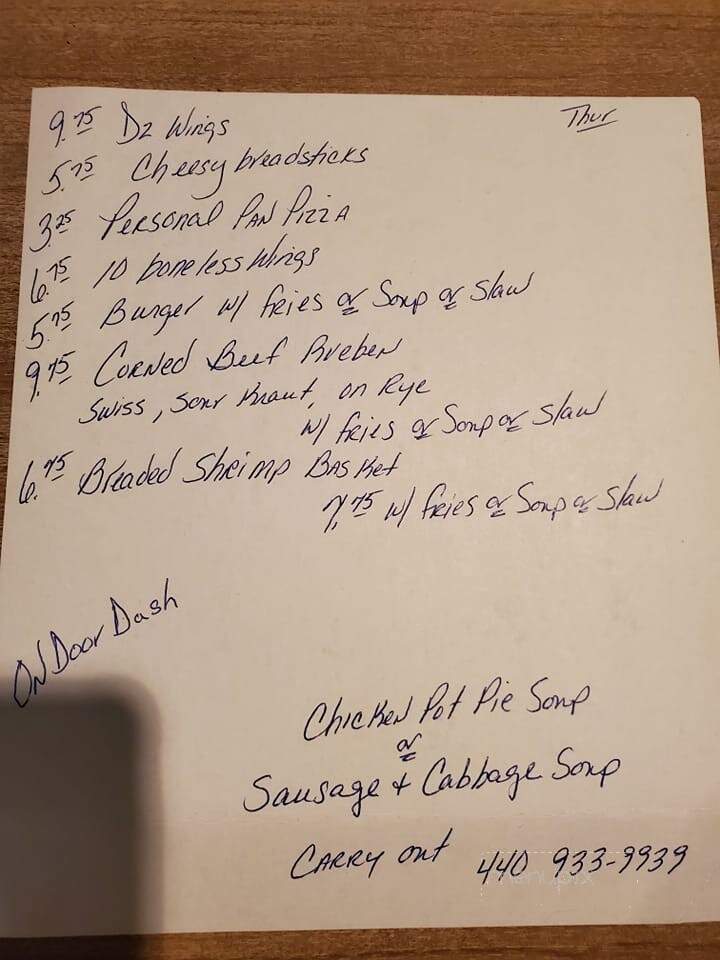 Thur
9.75 Dz Wings
5.75 Cheesy breadsticks
3.25 Personal Pan Pizza
6.75 10 boneless Wings
5.75 Burger w/ fries or Soup or Slaw
9.75 Corned Beef Rueben
Swiss, Sour Kraut, on Rye
w/ fries or Soup or Slaw
6.75 Breaded Shrimp Basket
7.75 w/ fries or Soup or Slaw
On Door Dash
Chicken Pot Pie Soup
or
Sausage + Cabbage Soup
Carry out 440 933-9939